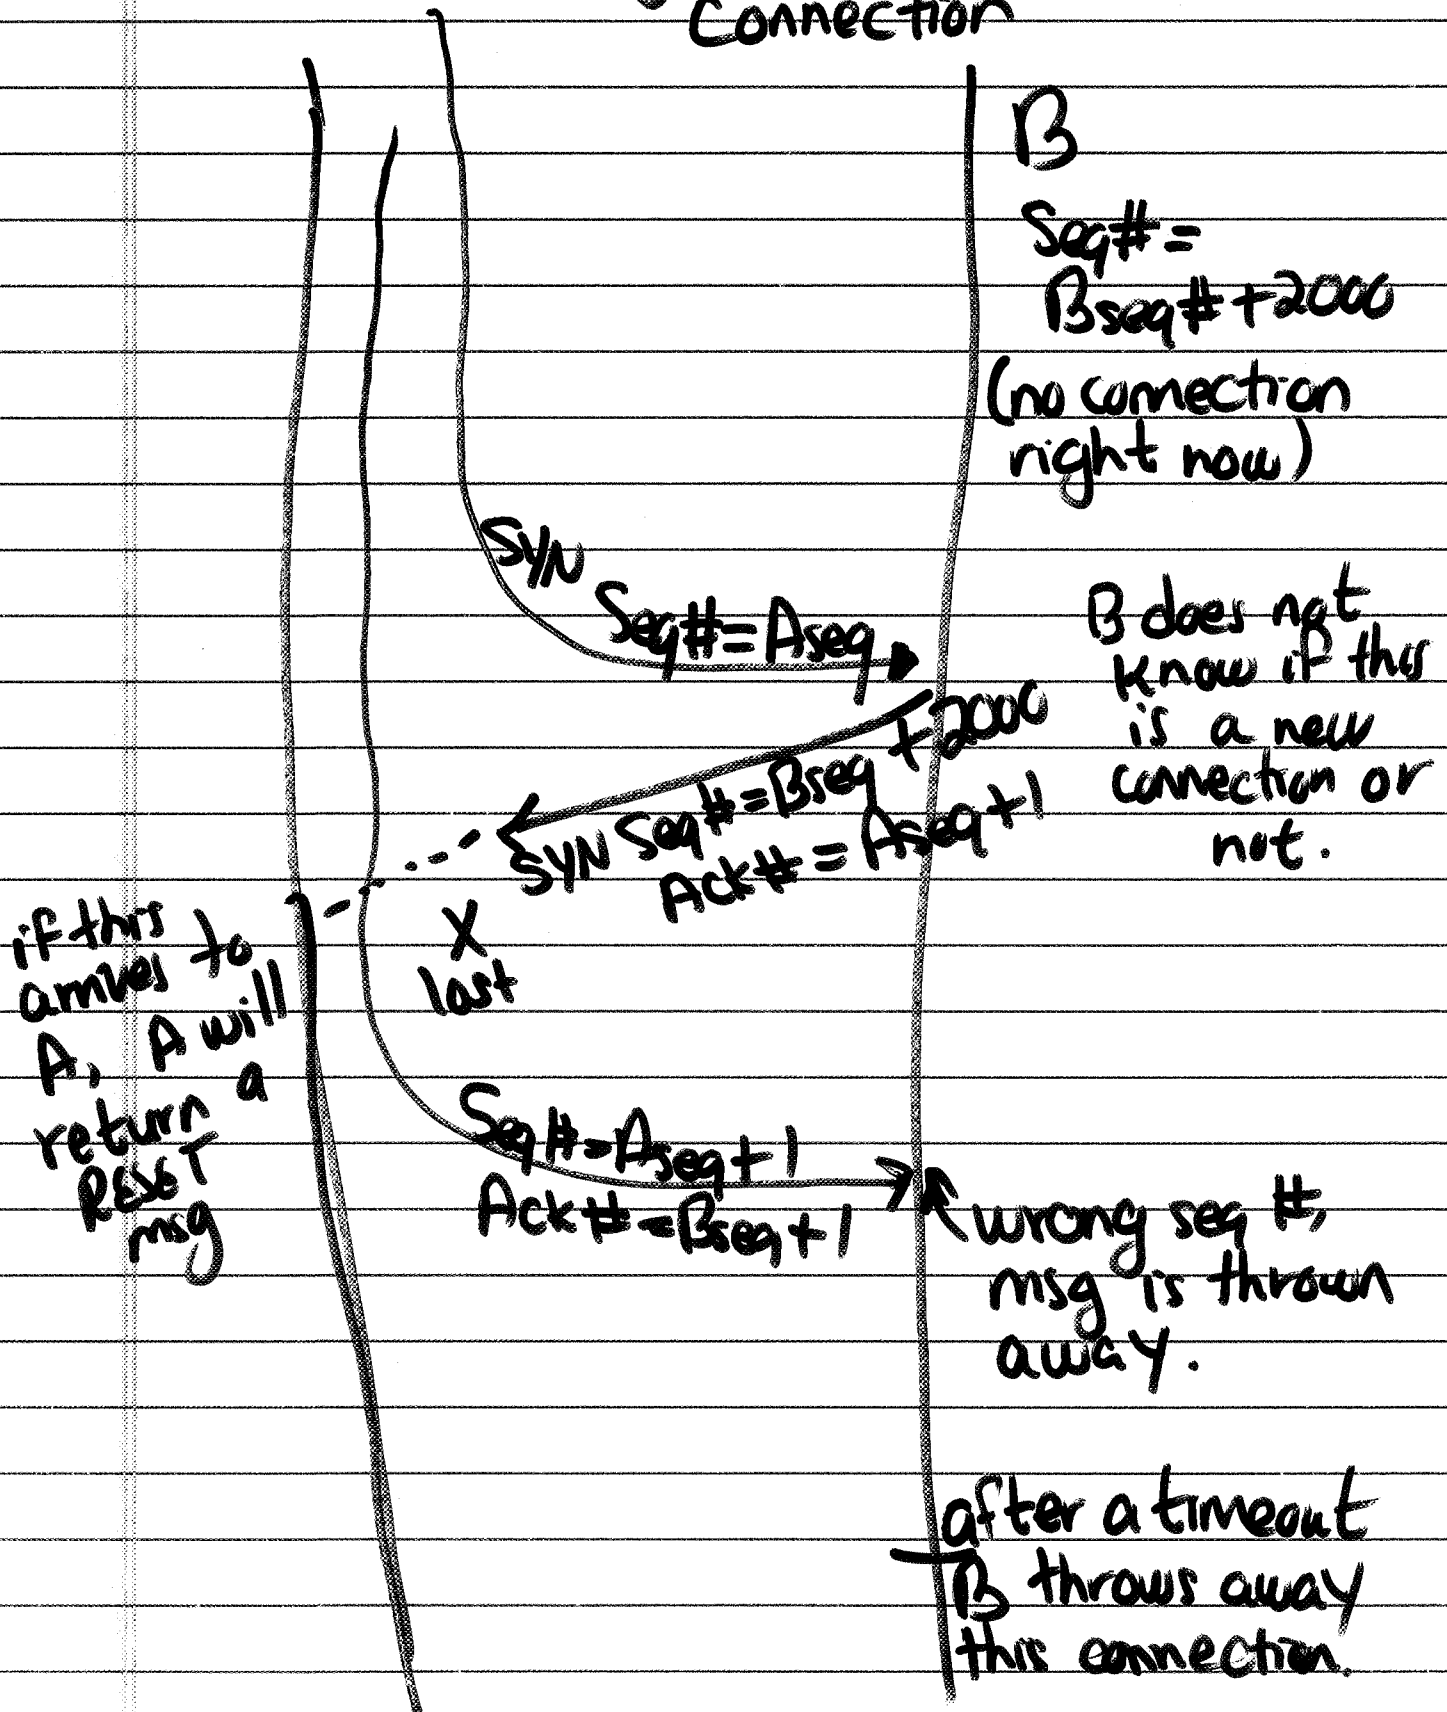 Connection
B
Seq#=
Bseq#+2000
(no connection
right now)
SYN
Seq#=Aseq
B does not
know if this
is a new
connection or
not.
SYN Seq#=Bseq +2000
Ack#=Aseq+1
if this
arrives to
A, A will
return a
RESET
msg
X
lost
Seq#=Aseq+1
Ack#=Bseq+1
wrong seq #,
msg is thrown
away.
after a timeout
B throws away
this connection.